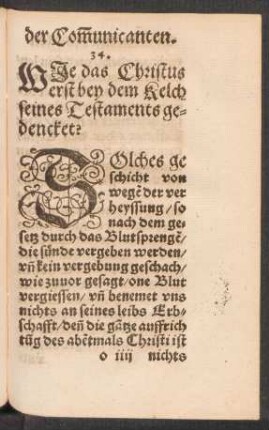 der Com̃unicanten.
34.
WJe das Christus
erst bey dem Kelch
seines Testaments ge⸗
dencket?
SOlches ge
schicht von
wegẽ der ver
heyssung / so
nach dem ge⸗
setz durch das Blutsprengẽ /
die sünde vergeben werden /
vñ kein vergebung geschach /
wie zuuor gesagt / one Blut
vergiessen / vñ benemet vns
nichts an seines leibs Erb⸗
schafft / deñ die gãtze auffrich
tũg des abẽtmals Christi ist
o iiij nichts